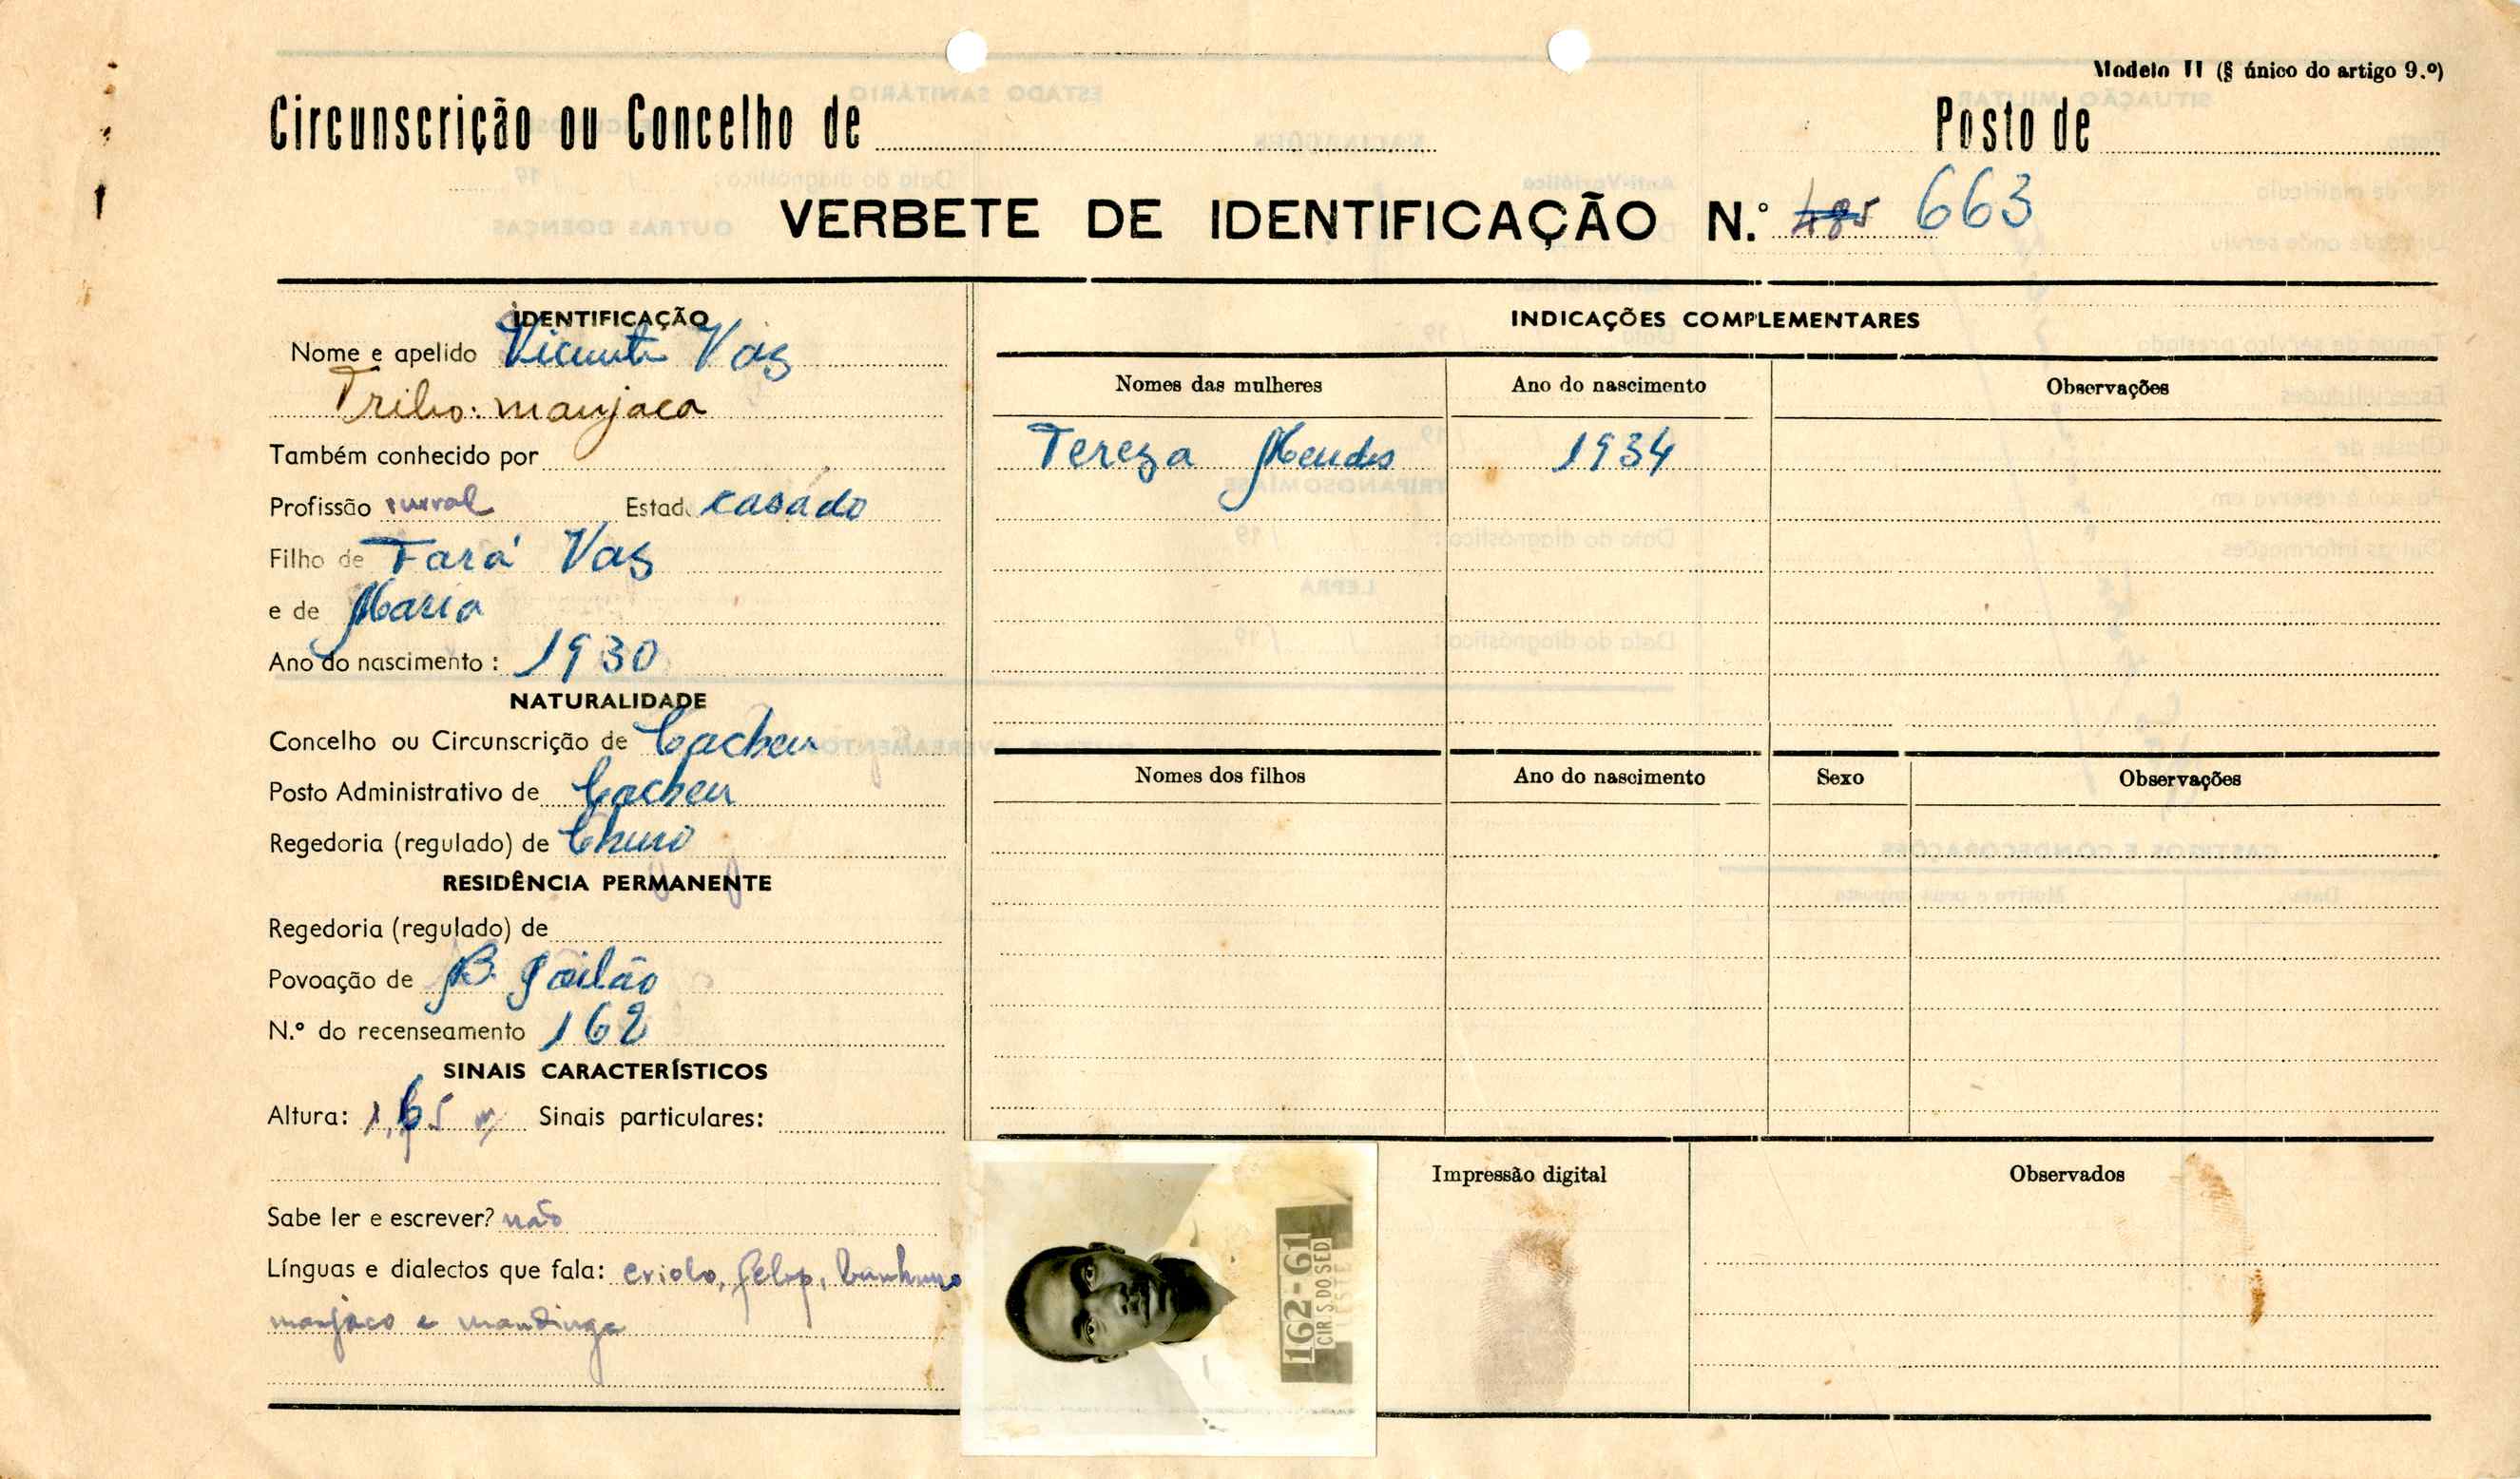 Modelo II (§ único do artigo 9.º)
Circunscrição ou Concelho de
Posto de
VERBETE DE IDENTIFICAÇÃO N.º 485 663
IDENTIFICAÇÃO
Nome e apelido Vicente Vaz
Tribo: manjaca
Também conhecido por
Profissão rural Estado casado
Filho de Fará Vaz
e de Maria
Ano do nascimento: 1930
NATURALIDADE
Concelho ou Circunscrição de Cacheu
Posto Administrativo de Cacheu
Regedoria (regulado) de Churo
RESIDÊNCIA PERMANENTE
Regedoria (regulado) de
Povoação de B. Poilão
N.º do recenseamento 162
SINAIS CARACTERÍSTICOS
Altura: 1,65 m Sinais particulares:
Sabe ler e escrever? não
Línguas e dialectos que fala: criolo, felup, banhuno
manjaco e mandinga
INDICAÇÕES COMPLEMENTARES
Nomes das mulheres Ano do nascimento Observações
Tereza Mendes 1934
Nomes dos filhos Ano do nascimento Sexo Observações
162-61
CIR.S.DO SED
Impressão digital
Observados